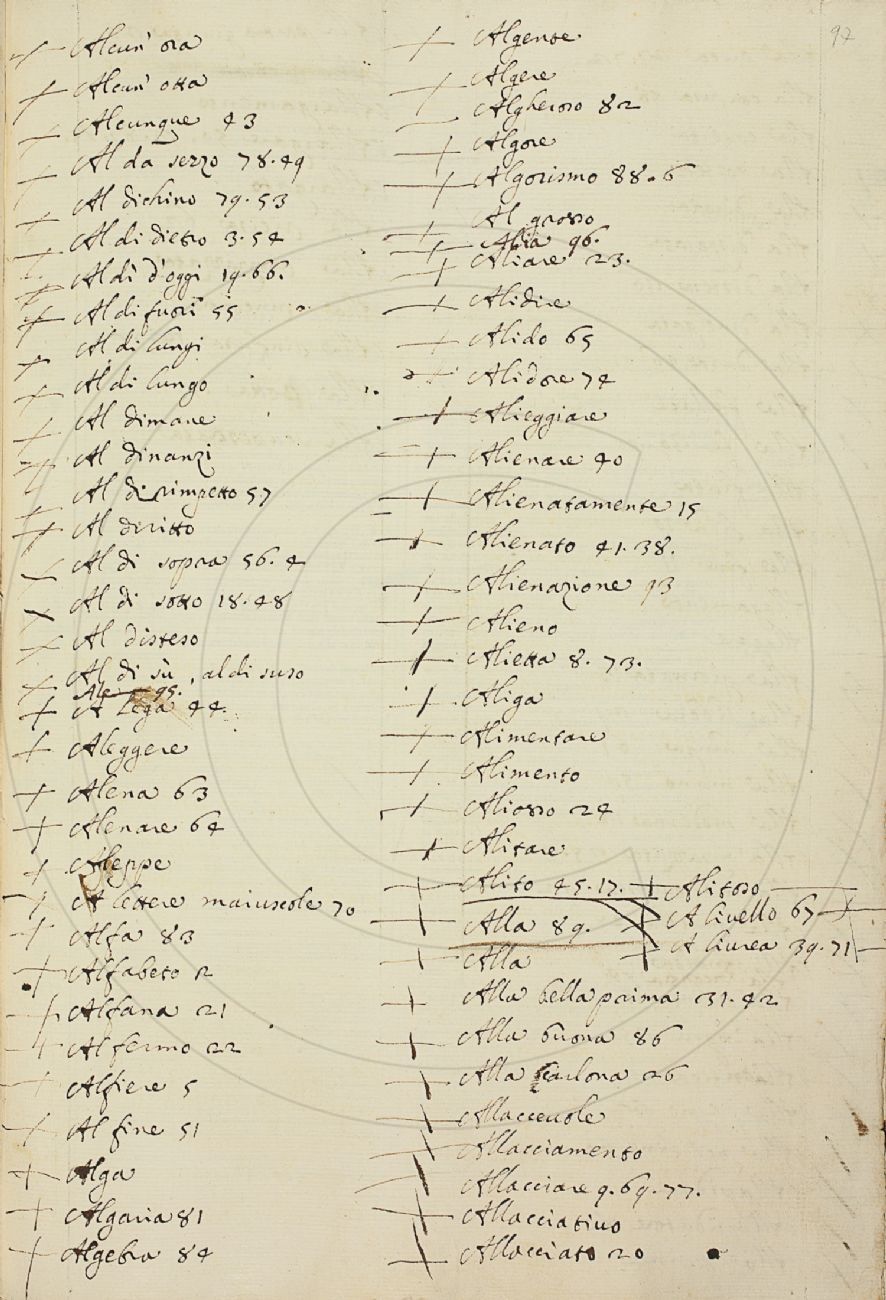 97
Alcun' ora
Alcun' otta
Alcunque 43
Al da sezzo 78.49
Al dichino 79.53
Al di dietro 3.54
Al dì d'oggi 19.66.
Al di fuori 55
Al di lungi
Al di lungo
Al dimane
Al dinanzi
Al di rimpetto 57
Al diritto
Al di sopra 56.4
Al di sotto 18.48
Al disteso
Al di sù, al di suso
Ale 95.
A lega 44.
Aleggere
Alena 63
Alenare 64
Aleppe
A lettere maiuscole 70
Alfa 83
Alfabeto 2
Alfana 21
Al fermo 22
Alfiere 5
Al fine 51
Alga
Algaria 81
Algebra 84
Algente
Algere
Algheroso 82
Algore
Algorismo 88.6
Al grosso
Alia 96.
Aliare 23.
Alidire
Alido 65
Alidore 74
Alieggiare
Alienare 40
Alienatamente 15
Alienato 41.38.
Alienazione 93
Alieno
Alietta 8. 73.
Aliga
Alimentare
Alimento
Aliosso 24
Alitare
Alito 45.17. Alitoso
Alla 89. A livello 67
Alla A liurea 39.71
Alla bella prima 31.42
Alla buona 86
Alla carlona 26
Allacceuole
Allacciamento
Allacciare 9.69.77.
Allacciatiuo
Allacciato 20